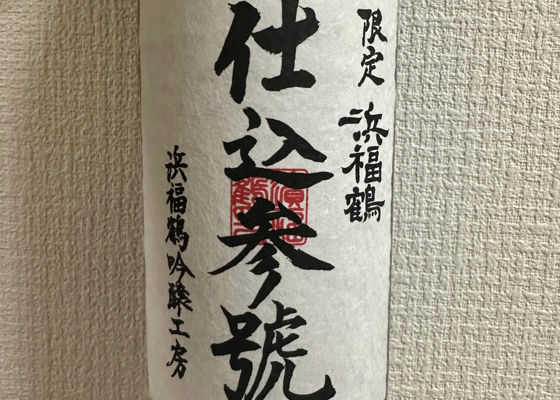 限定 浜福鶴
仕込参號
浜福鶴吟醸工房